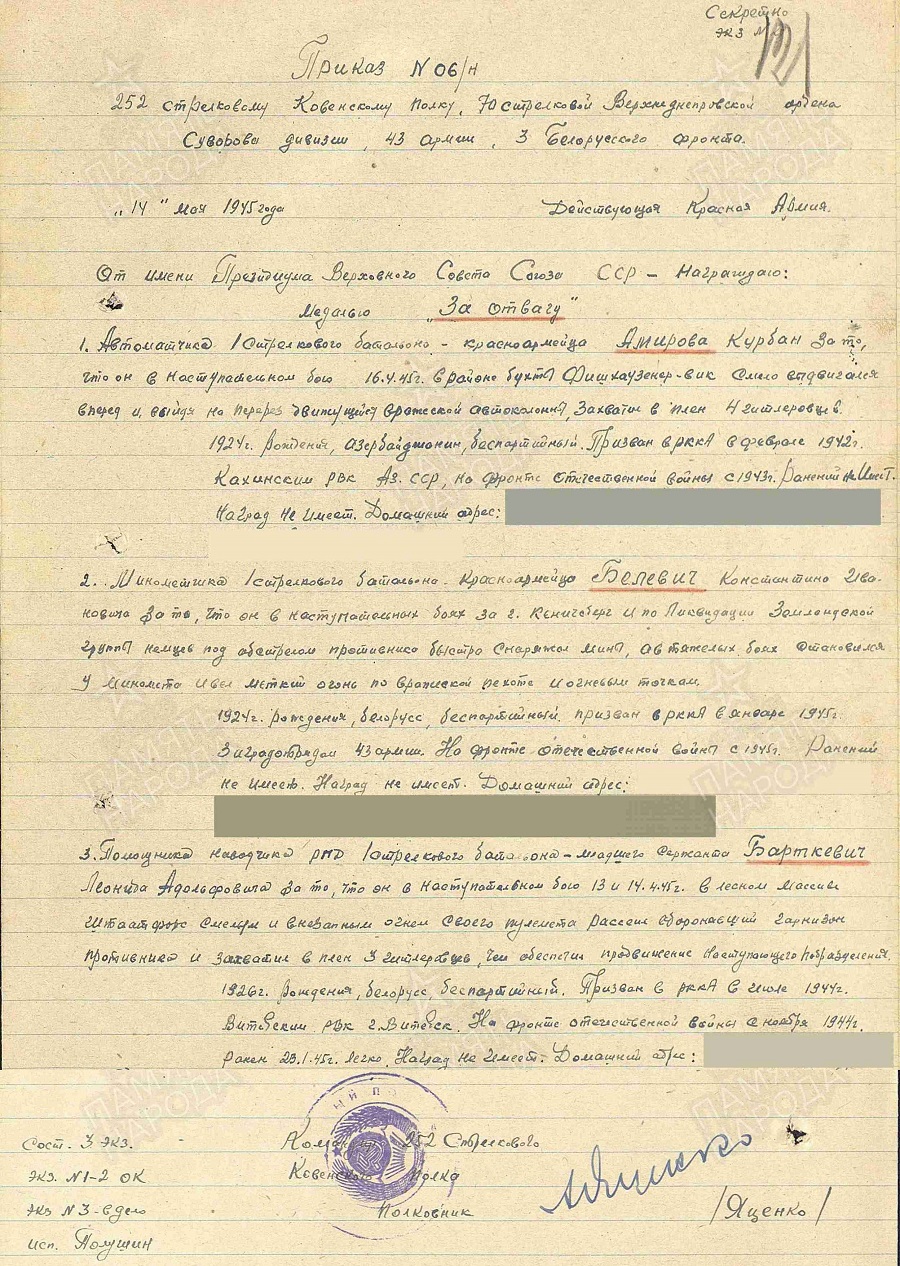 Секретно
экз №
Приказ N 06/н
252 стрелковому Ковенскому полку, 70 стрелковой Верхнеднепровской ордена
Суворова дивизии, 43 армии, 3 Белорусского фронта.
"14" мая 1945 года Действующая Красная Армия.
От имени Президиума Верховного Совета Союза ССР – Награждаю:
Медалью "За отвагу"
1. Автоматчика 1 стрелкового батальона – красноармейца Амирова Курбан За то,
что он в наступательном бою 16.4.45г. в районе бухты Фишхаузенер-вик смело выдвигался
вперед и, выйдя на перерез движущейся вражеской автоколонны, захватил в плен 4 гитлеровцев.
1924г. рождения, азербайджанин, беспартийный. Призван в РККА в феврале 1942г.
Кахинским РВК Аз. ССР, на фронте Отечественной войны с 1943г. Ранений не имеет.
Наград не имеет. Домашний адрес:
2. Минометчика 1 стрелкового батальона – Красноармейца Белевич Константина Ива-
новича За то, что он в наступательных боях за г. Кенигсберг и по ликвидации Земландской
группы немцев под обстрелом противника быстро снаряжал мины, а в тяжелых боях становился
у миномета и вел меткий огонь по вражеской пехоте и огневым точкам
1924г. рождения, белорусс, беспартийный. призван в РККА в январе 1945г.
Заградотрядом 43 армии. На фронте отечественной войны с 1945г. Ранений
не имеет. Наград не имеет. Домашний адрес:
3. Помощника наводчика РПД 1 стрелкового батальона – младшего сержанта Барткевич
Леонида Адольфовича За то, что он в наступательном бою 13 и 14.4.45г. в лесном массиве
Штаатфорс смелым и внезапным огнем своего пулемета рассеял оборонявший гарнизон
противника и захватил в плен 3 гитлеровцев, чем обеспечил продвижение наступающего подразделения.
1926г. рождения, белорусс, беспартийный. Призван в РККА в июле 1944г.
Витебским РВК г. Витебск. На фронте отечественной войны с ноября 1944г.
ранен 23.1.45г. легко. Наград не имеет. Домашний адрес:
Сост. 3 экз. Командир 252 Стрелкового
экз. N 1-2 ОК Ковенского полка
экз N 3 – в дело Полковник /Яценко/
исп. Полушин
ПАМЯТЬ НАРОДА